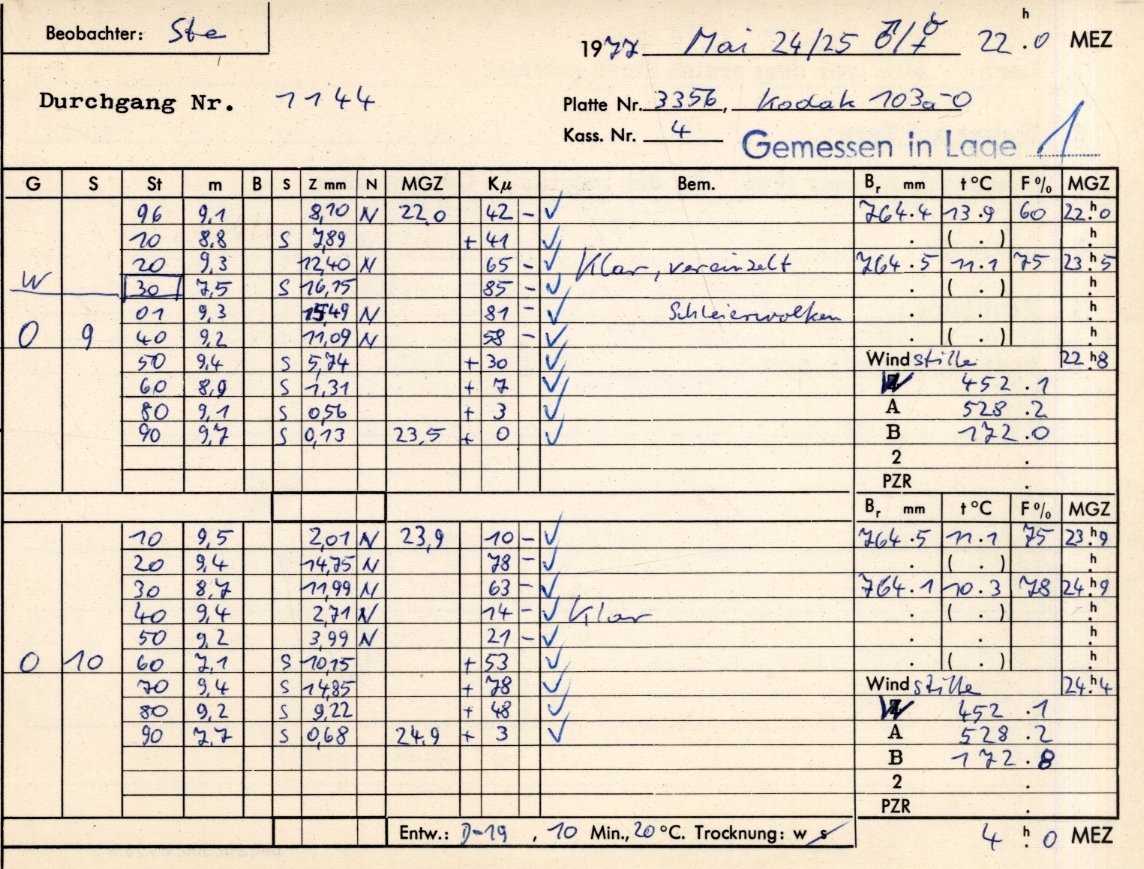 Beobachter: Ste
1977 Mai 24/25 ♂/☿ 22 h . 0 MEZ
Durchgang Nr. 1144
Platte Nr. 3356, Kodak 103a-O
Kass. Nr. 4
Gemessen in Lage 1
G S St m B S Z mm N MGZ Kμ Bem. Br mm t °C F % MGZ
96 9,1 8,10 N 22,0 42 - ✓ 764.4 13.9 60 22.h0
10 8.8 S 7,89 + 41 ✓ . ( . ) .h
20 9,3 12,40 N 65 - ✓ Klar, vereinzelt 764.5 11.1 75 23.h5
W 30 7,5 S 16,15 85 - ✓ . ( . ) .h
01 9,3 15,49 N 81 - ✓ Schleierwolken . .h
O 9 40 9,2 11,09 N 58 - ✓ . ( . ) .h
50 9.4 S 5,74 + 30 ✓ Windstille 22.h8
60 8,9 S 1,31 + 7 ✓ W 452.1
80 9,1 S 0,56 + 3 ✓ A 528.2
90 9,7 S 0,13 23,5 + 0 ✓ B 172.0
2 .
PZR .
Br mm t °C F % MGZ
10 9,5 2,01 N 23,9 10 - ✓ 764.5 11.1 75 23.h9
20 9,4 14,75 N 78 - ✓ . ( . ) .h
30 8,7 11,99 N 63 - ✓ 764.1 10.3 78 24.h9
40 9,4 2,71 N 14 - ✓ Klar . ( . ) .h
50 9,2 3,99 N 21 - ✓ . .h
O 10 60 7,1 S 10,15 + 53 ✓ . ( . ) .h
70 9,4 S 14,85 + 78 ✓ Windstille 24.h4
80 9,2 S 9,22 + 48 ✓ W 452.1
90 7,7 S 0,68 24,9 + 3 ✓ A 528.2
B 172.8
2 .
PZR .
Entw.: D-19, 10 Min., 20 °C. Trocknung: w s 4 h . 0 MEZ